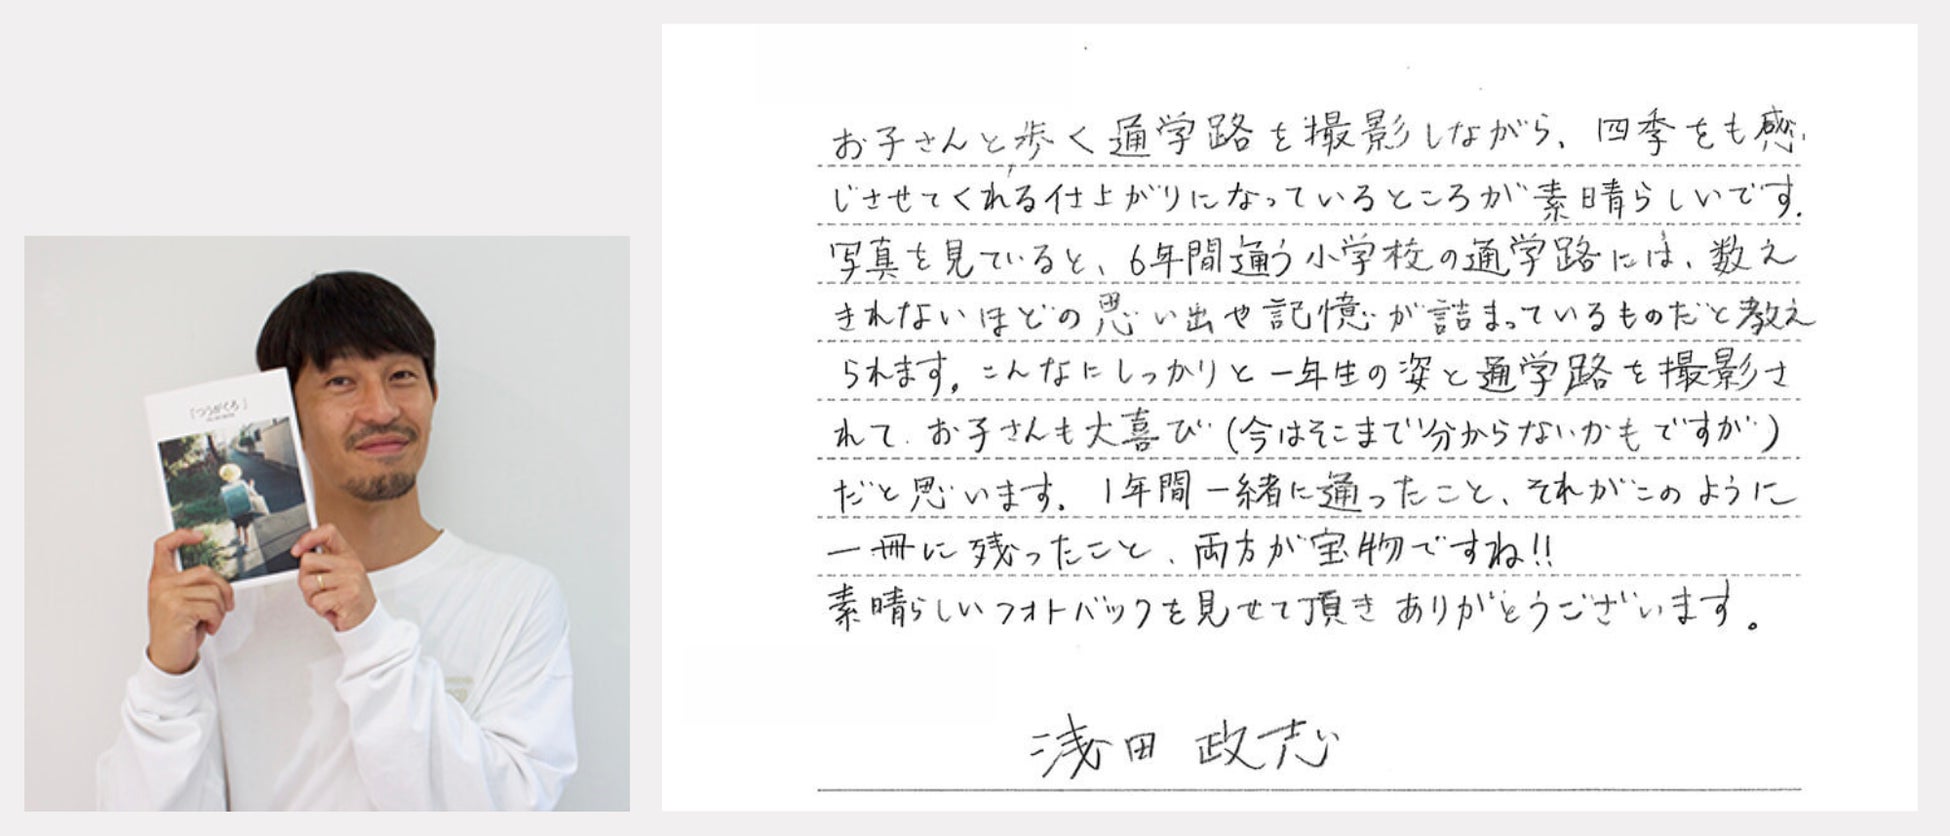 「つうがくろ」
お子さんと歩く通学路を撮影しながら、四季をも感
じさせてくれる仕上がりになっているところが素晴らしいです。
写真を見ていると、6年間通う小学校の通学路には、数え
きれないほどの思い出や記憶が詰まっているものだと教え
られます。こんなにしっかりと一年生の姿と通学路を撮影さ
れて、お子さんも大喜び(今はそこまで分からないかもですが)
だと思います。1年間一緒に通ったこと、それがこのように
一冊に残ったこと、両方が宝物ですね!!
素晴らしいフォトバックを見せて頂きありがとうございます。
浅田 政志